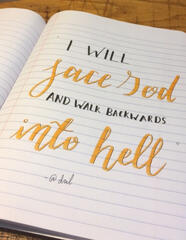 I WILL
face God
AND WALK BACKWARDS
into hell
-@dril